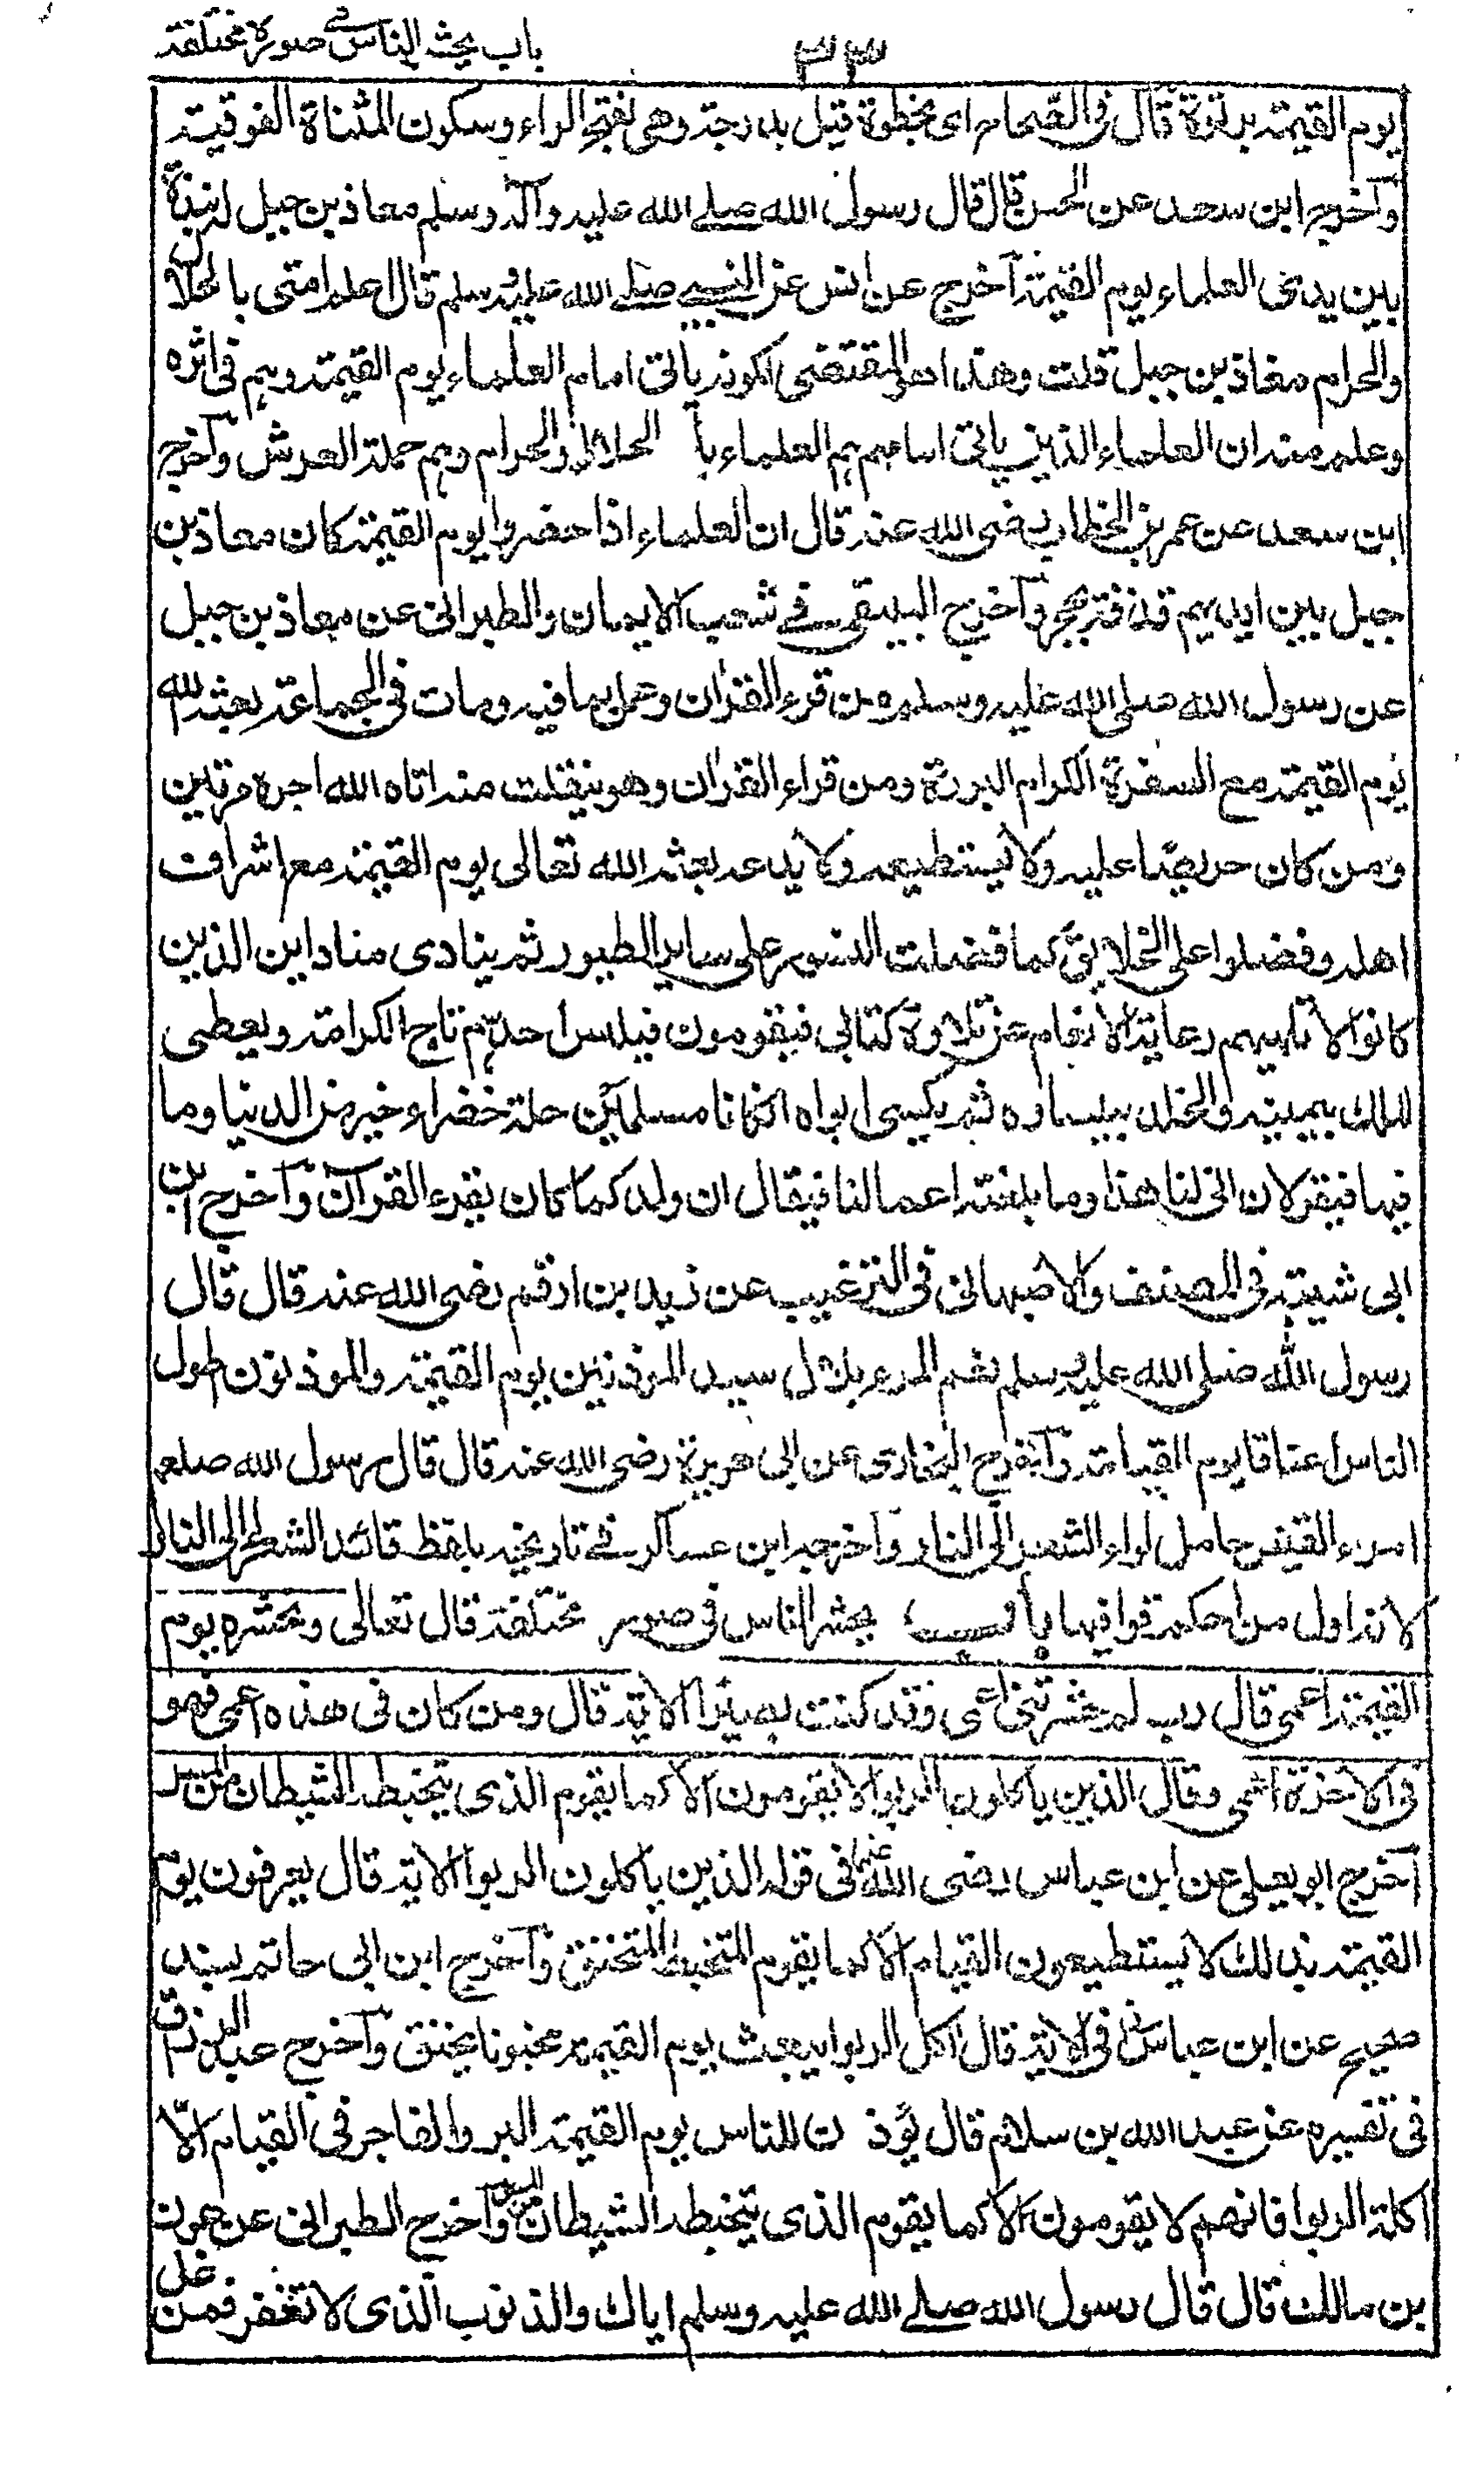 باب يحشر الناس فى صورة مختلفة
٣٣
يوم القيمة برتوة قال فى الصحاح اى بخطوة قيل بدرجة وهى بفتح الراء وسكون المثناة الفوقية
وآخرج ابن سعد عن الحسن قال قال رسول الله صلے الله عليه وآله وسلم معاذ بن جبل له نبذة
بين يدى العلماء يوم القيمة آخرج عن انس عن النبے صلے الله عليه وسلم قال اعلم امتى بالحلال
والحرام معاذ بن جبل قلت وهذا هو المقتضى لكونه ياتى امام العلماء يوم القيمة وهم فى اثره
وعلم منه ان العلماء الذين ياتى امامهم هم العلماء با الحلال والحرام وهم حملة العرش وآخرج
ابن سعد عن عمر بن الخطاب رضى الله عنه قال ان العلماء اذا حضروا يوم القيمة كان معاذ بن
جبل بين ايديهم قذفة بحجر وآخرج البيهقى فے شعب الايمان والطبرانى عن معاذ بن جبل
عن رسول الله صلى الله عليه وسلم من قرء القران وعمل بما فيه ومات فى الجماعة بعثه الله
يوم القيمة مع السفرة الكرام البررة ومن قراء القران وهو ينفلت منه اتاه الله اجره مرتين
ومن كان حريصا عليه ولا يستطيعه ولا يدعه بعثه الله تعالى يوم القيمة مع اشراف
اهله وفضلوا على الخلايق كما فضلت النسور على ساير الطيور ثم ينادى مناد اين الذين
كانوا لا تلهيهم رعاية الانعام عن تلاوة كتابى فيقومون فيلبس احدهم تاج الكرامة ويعطى
الملك بيمينه والخلد بيساره ثم يكسى ابواه ان كانا مسلمين حلة خضراء خير من الدنيا وما
فيها فيقولان انى لنا هذا وما بلغته اعمالنا فيقال ان ولدكما كان يقرء القرآن وآخرج ابن
ابى شيبة فى المصنف والاصبهانى فى الترغيب عن زيد بن ارقم رضى الله عنه قال قال
رسول الله صلى الله عليه وسلم نعم المرء بلال سيد المؤذنين يوم القيمة والموذنون اطول
الناس اعناقا يوم القيامة وآخرج البخارى عن ابى هريرة رضى الله عنه قال قال رسول الله صلعم
امرء القيس حامل لواء الشعر الى النار وآخرجه ابن عساكر فے تاريخه بلفظ قائد الشعراء الى النار
لانه اول من احكم قوافيها باب يحشر الناس فى صور مختلفة قال تعالى ونحشره يوم
القيمة اعمى قال رب لم حشرتنى اعمى وقد كنت بصيرا الاية قال ومن كان فى هذه اعمى فهو
فى الاخرة اعمى وقال الذين ياكلون الربوا لا يقومون الا كما يقوم الذى يتخبطه الشيطان من المس
آخرج ابو يعلى عن ابن عباس رضى الله عنه فى قوله الذين ياكلون الربوا الاية قال يعرفون يوم
القيمة بذلك لا يستطيعون القيام الا كما يقوم المتخبط المتخنق وآخرج ابن ابى حاتم بسند
صحيح عن ابن عباس فى الاية قال اكل الربوا يبعث يوم القيمة مجنونا يخنق وآخرج عبد الرزاق
فى تفسيره عن عبد الله بن سلام قال يؤذ ن للناس يوم القيمة البر والفاجر فى القيام الّا
اكلة الربوا فانهم لا يقومون الا كما يقوم الذى يتخبطه الشيطان من المس وآخرج الطبرانى عن عون
بن مالك قال قال رسول الله صلے الله عليه وسلم اياك والذنوب الذى لا تغفر فمن غل